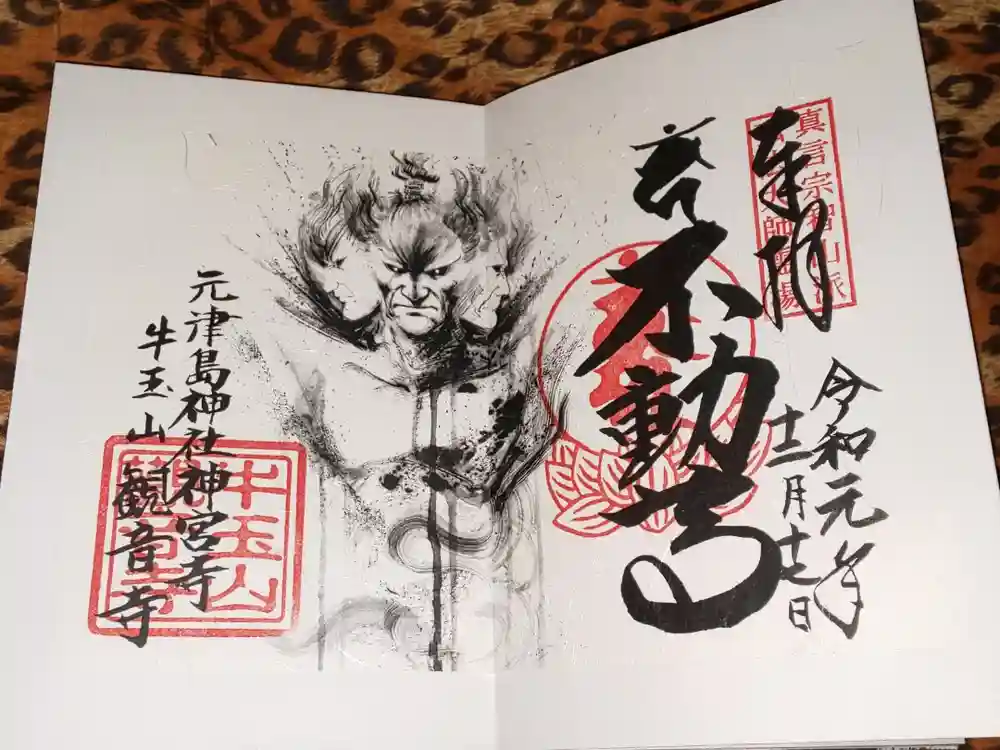 真言宗智山派
奉拝
令和元年
十二月十七日
苔不動尊
元津島神社神宮寺
牛玉山觀音寺
牛玉山